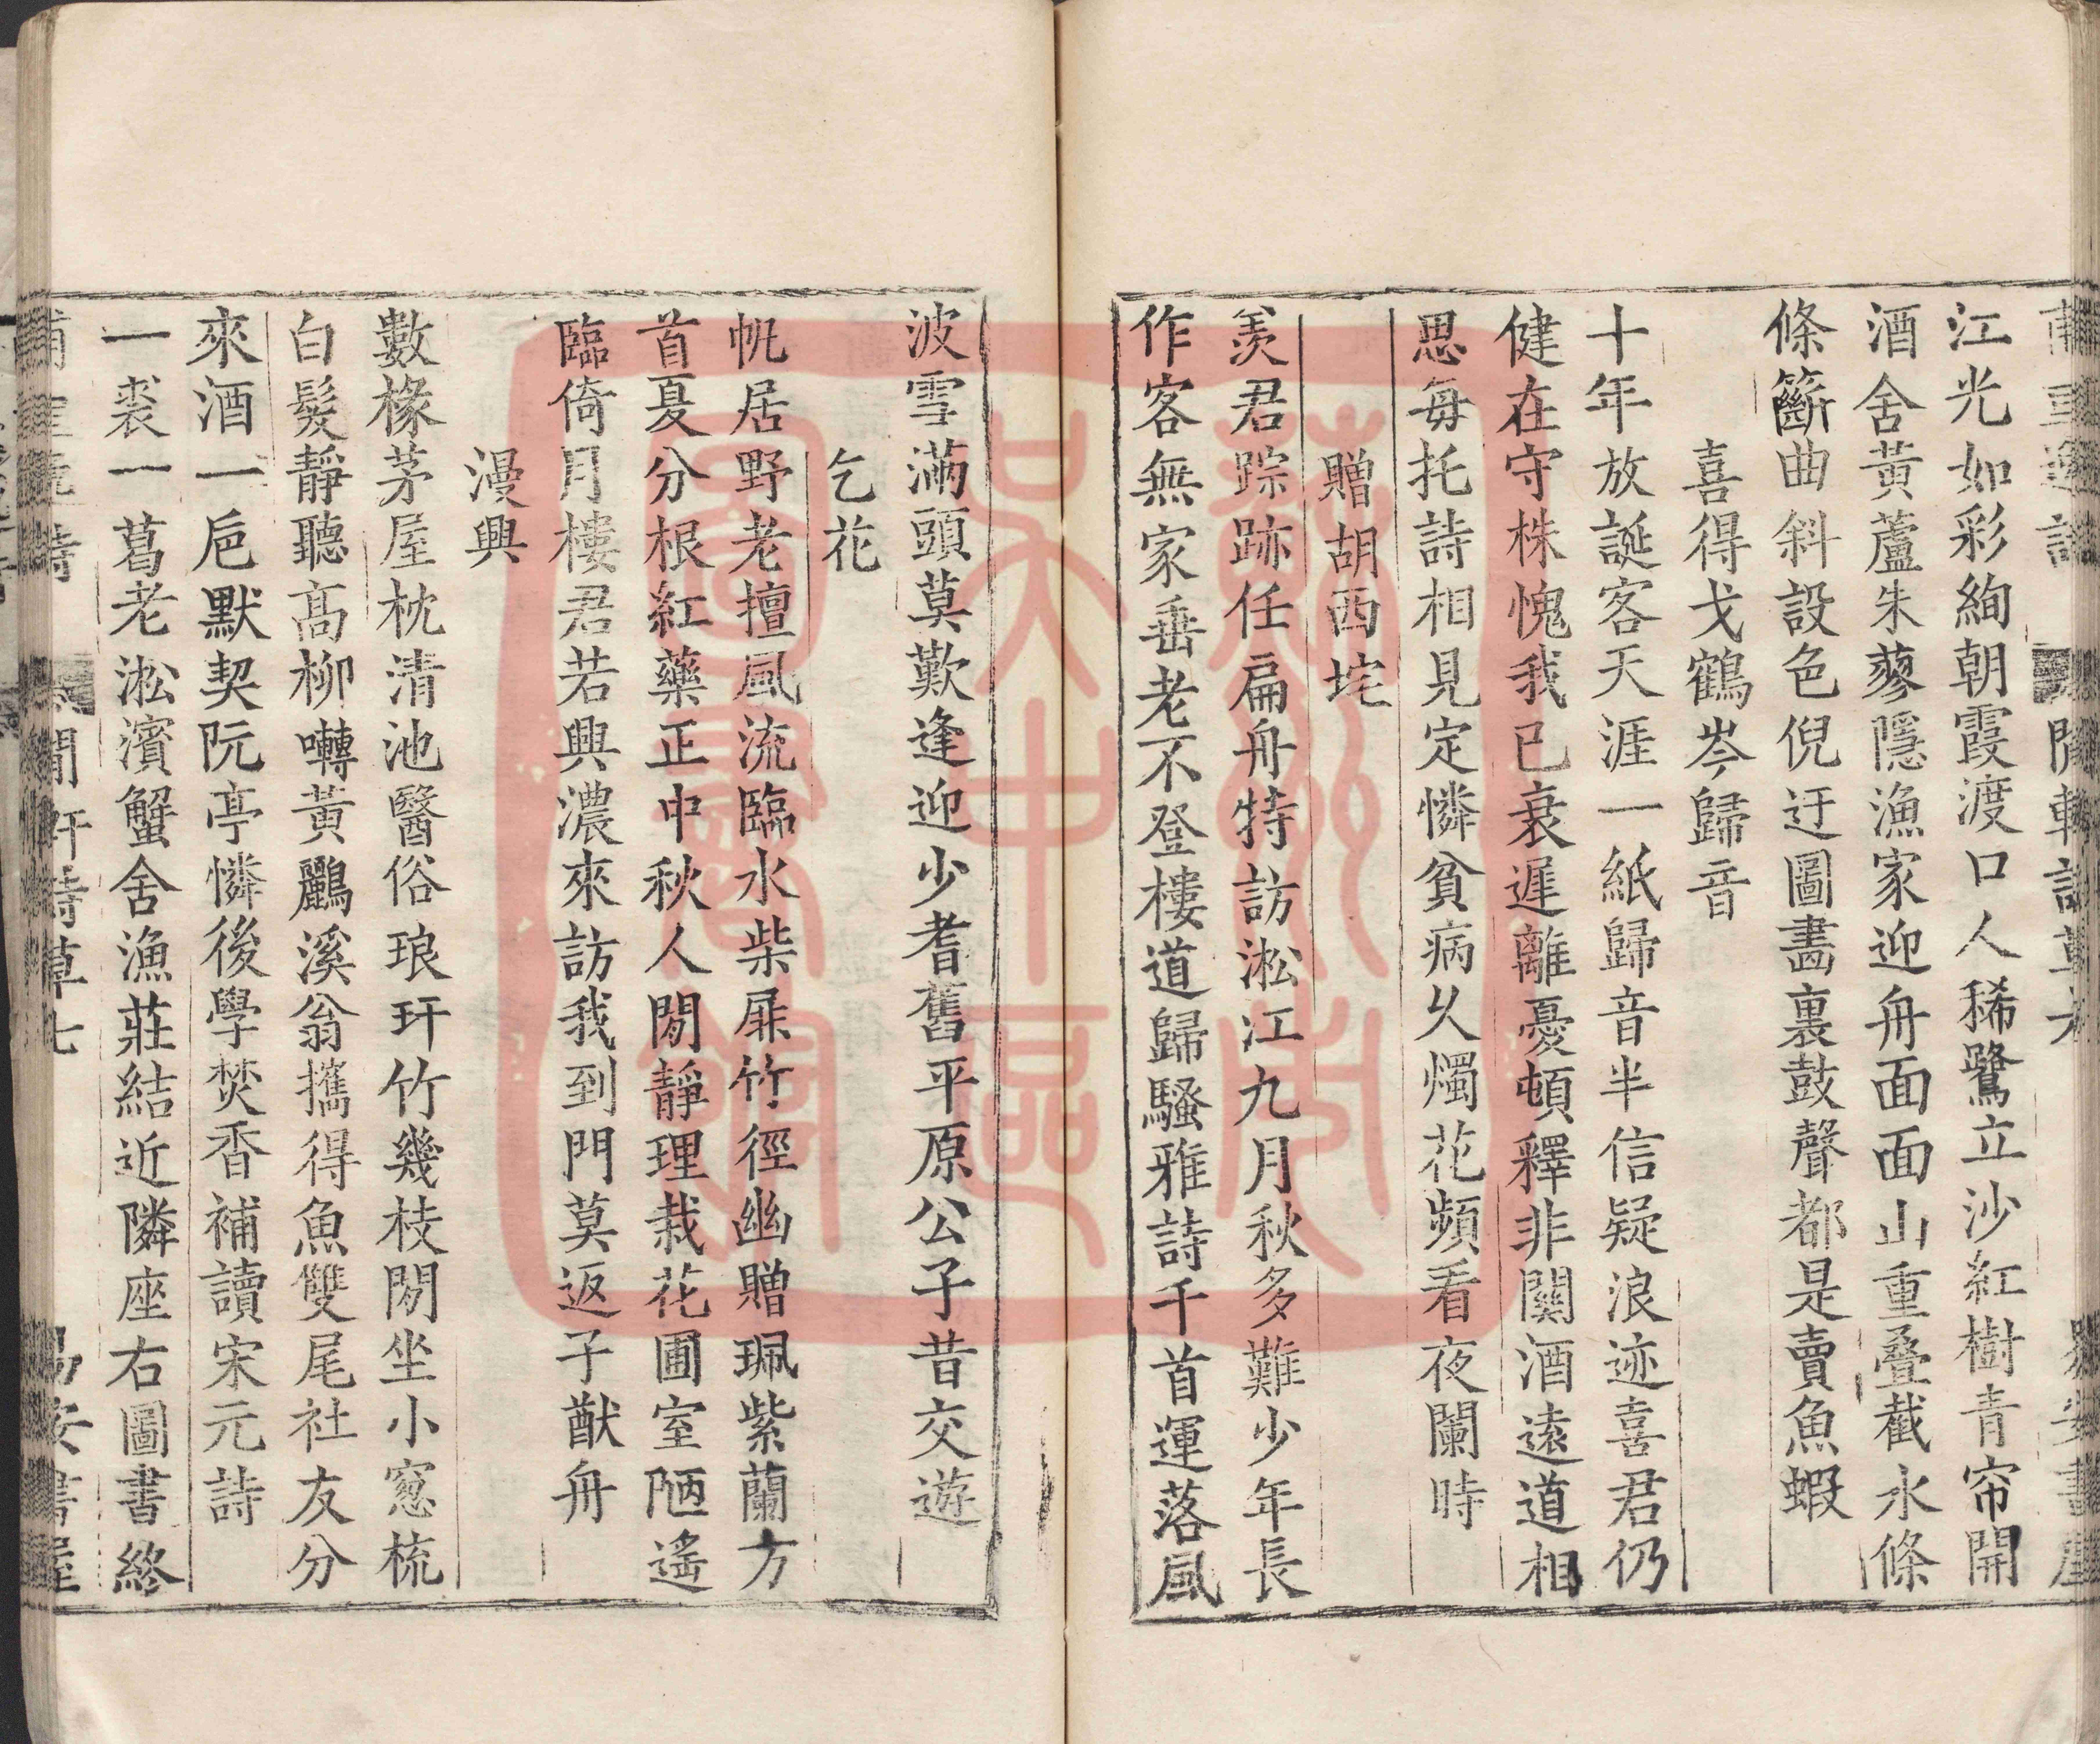 江光如彩絢朝霞渡口人稀鷺立沙紅樹青帘開
酒舍黃蘆朱蓼隱漁家迎舟面面山重叠截水條
條籪曲斜設色倪迂圖畵裏鼓聲都是賣魚蝦
喜得戈鶴岑歸音
十年放誕客天涯一紙歸音半信疑浪迹喜君仍
健在守株愧我已衰遲離憂頓釋非關酒遠道相
思每托詩相見定憐貧病久燭花頻看夜闌時
贈胡西垞
羨君踪跡任扁舟特訪淞江九月秋多難少年長
作客無家垂老不登樓道歸騷雅詩千首運落風
波雪滿頭莫歎逢迎少耆舊平原公子昔交遊
乞花
帆居野老擅風流臨水柴扉竹徑幽贈珮紫蘭方
首夏分根紅藥正中秋人閒靜理栽花圃室陋遙
臨倚月樓君若興濃來訪我到門莫返子猷舟
漫興
數椽茅屋枕清池醫俗琅玕竹幾枝閒坐小窻梳
白髮靜聽高柳囀黃鸝溪翁攜得魚雙尾社友分
來酒一巵默契阮亭憐後學焚香補讀宋元詩
一裘一葛老淞濱蟹舍漁莊結近隣座右圖書終
閒軒詩草七